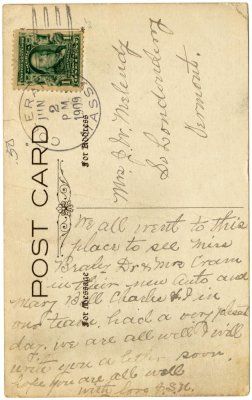 POST CARD
For Address
For Message
JUN
2
P M
1909
MASS
Mrs J. W. Melendy
So Londonderry
Vermont.
We all went to this
place to see Miss
Dr & Mrs Cram
in their new Auto and
Mary Bill Charlie & I in
our team. had a very pleasant
day. we are all well I will
write you a letter soon.
hope you are all well
with love